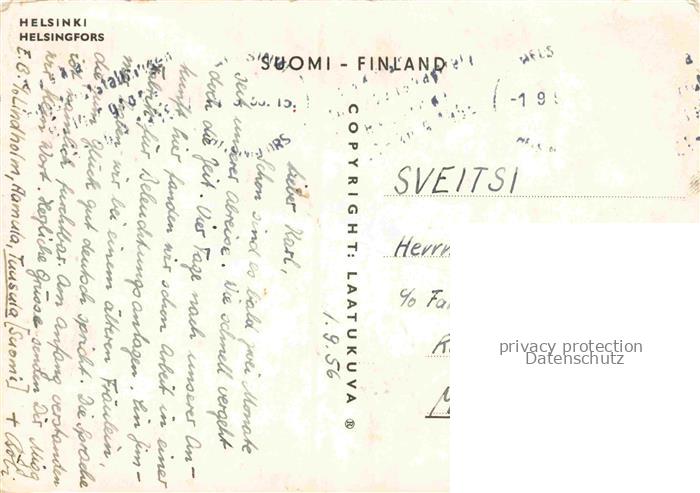 HELSINKI
HELSINGFORS
SUOMI - FINLAND
COPYRIGHT: LAATUKUVA ®
1.9.56
Lieber Karl,
Schon sind es bald zwei Monate
seit unserer Abreise. Wie schnell vergeht
doch die Zeit. Vier Tage nach unserer An-
kunft hier fanden wir schon Arbeit in einer
Fabrik für Beleuchtungsanlagen. Ein Zim-
mer wir bei einem älteren Fräulein,
die zum Glück gut deutsch spricht. Die Sprache
ist nämlich furchtbar. Am Anfang verstanden
wir kein Wort. Herzliche Grüsse senden Dir Migg
E.G. c/o Lindholm, Hamula, Tuusula [Suomi] +
SVEITSI
Herrn
c/o Fa
privacy protection
Datenschutz